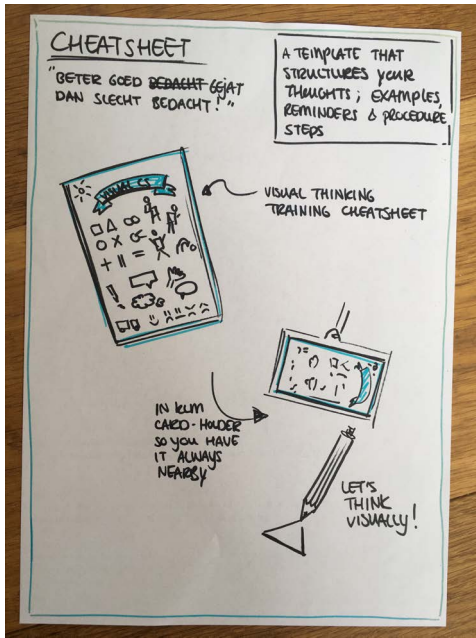 CHEATSHEET
"BETER GOED BEDACHT GEJAT
DAN SLECHT BEDACHT!"
A TEMPLATE THAT
STRUCTURES YOUR
THOUGHTS; EXAMPLES,
REMINDERS & PROCEDURE
STEPS
VISUAL CS
VISUAL THINKING
TRAINING CHEATSHEET
IN KLM
CARD-HOLDER
SO YOU HAVE
IT ALWAYS
NEARBY
LET'S
THINK
VISUALLY!